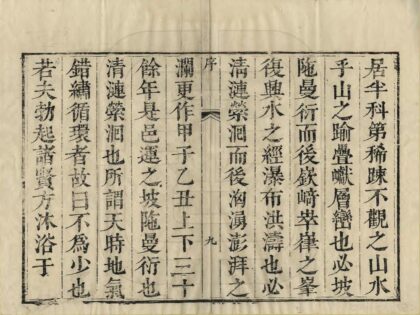 居半科第稀踈不觀之山水
乎山之踰疊巘層巒也必坡
陁曼衍而後嶔崎崒嵂之峯
復興水之經瀑布洪濤也必
淸漣縈洄而後洶湧澎湃之
序
九
瀾更作甲子乙丑上下三十
餘年是邑運之坡陁曼衍也
清漣縈洄也所謂天時地氣
錯繡循環者故曰不為少也
若夫勃起諸賢方沐浴于